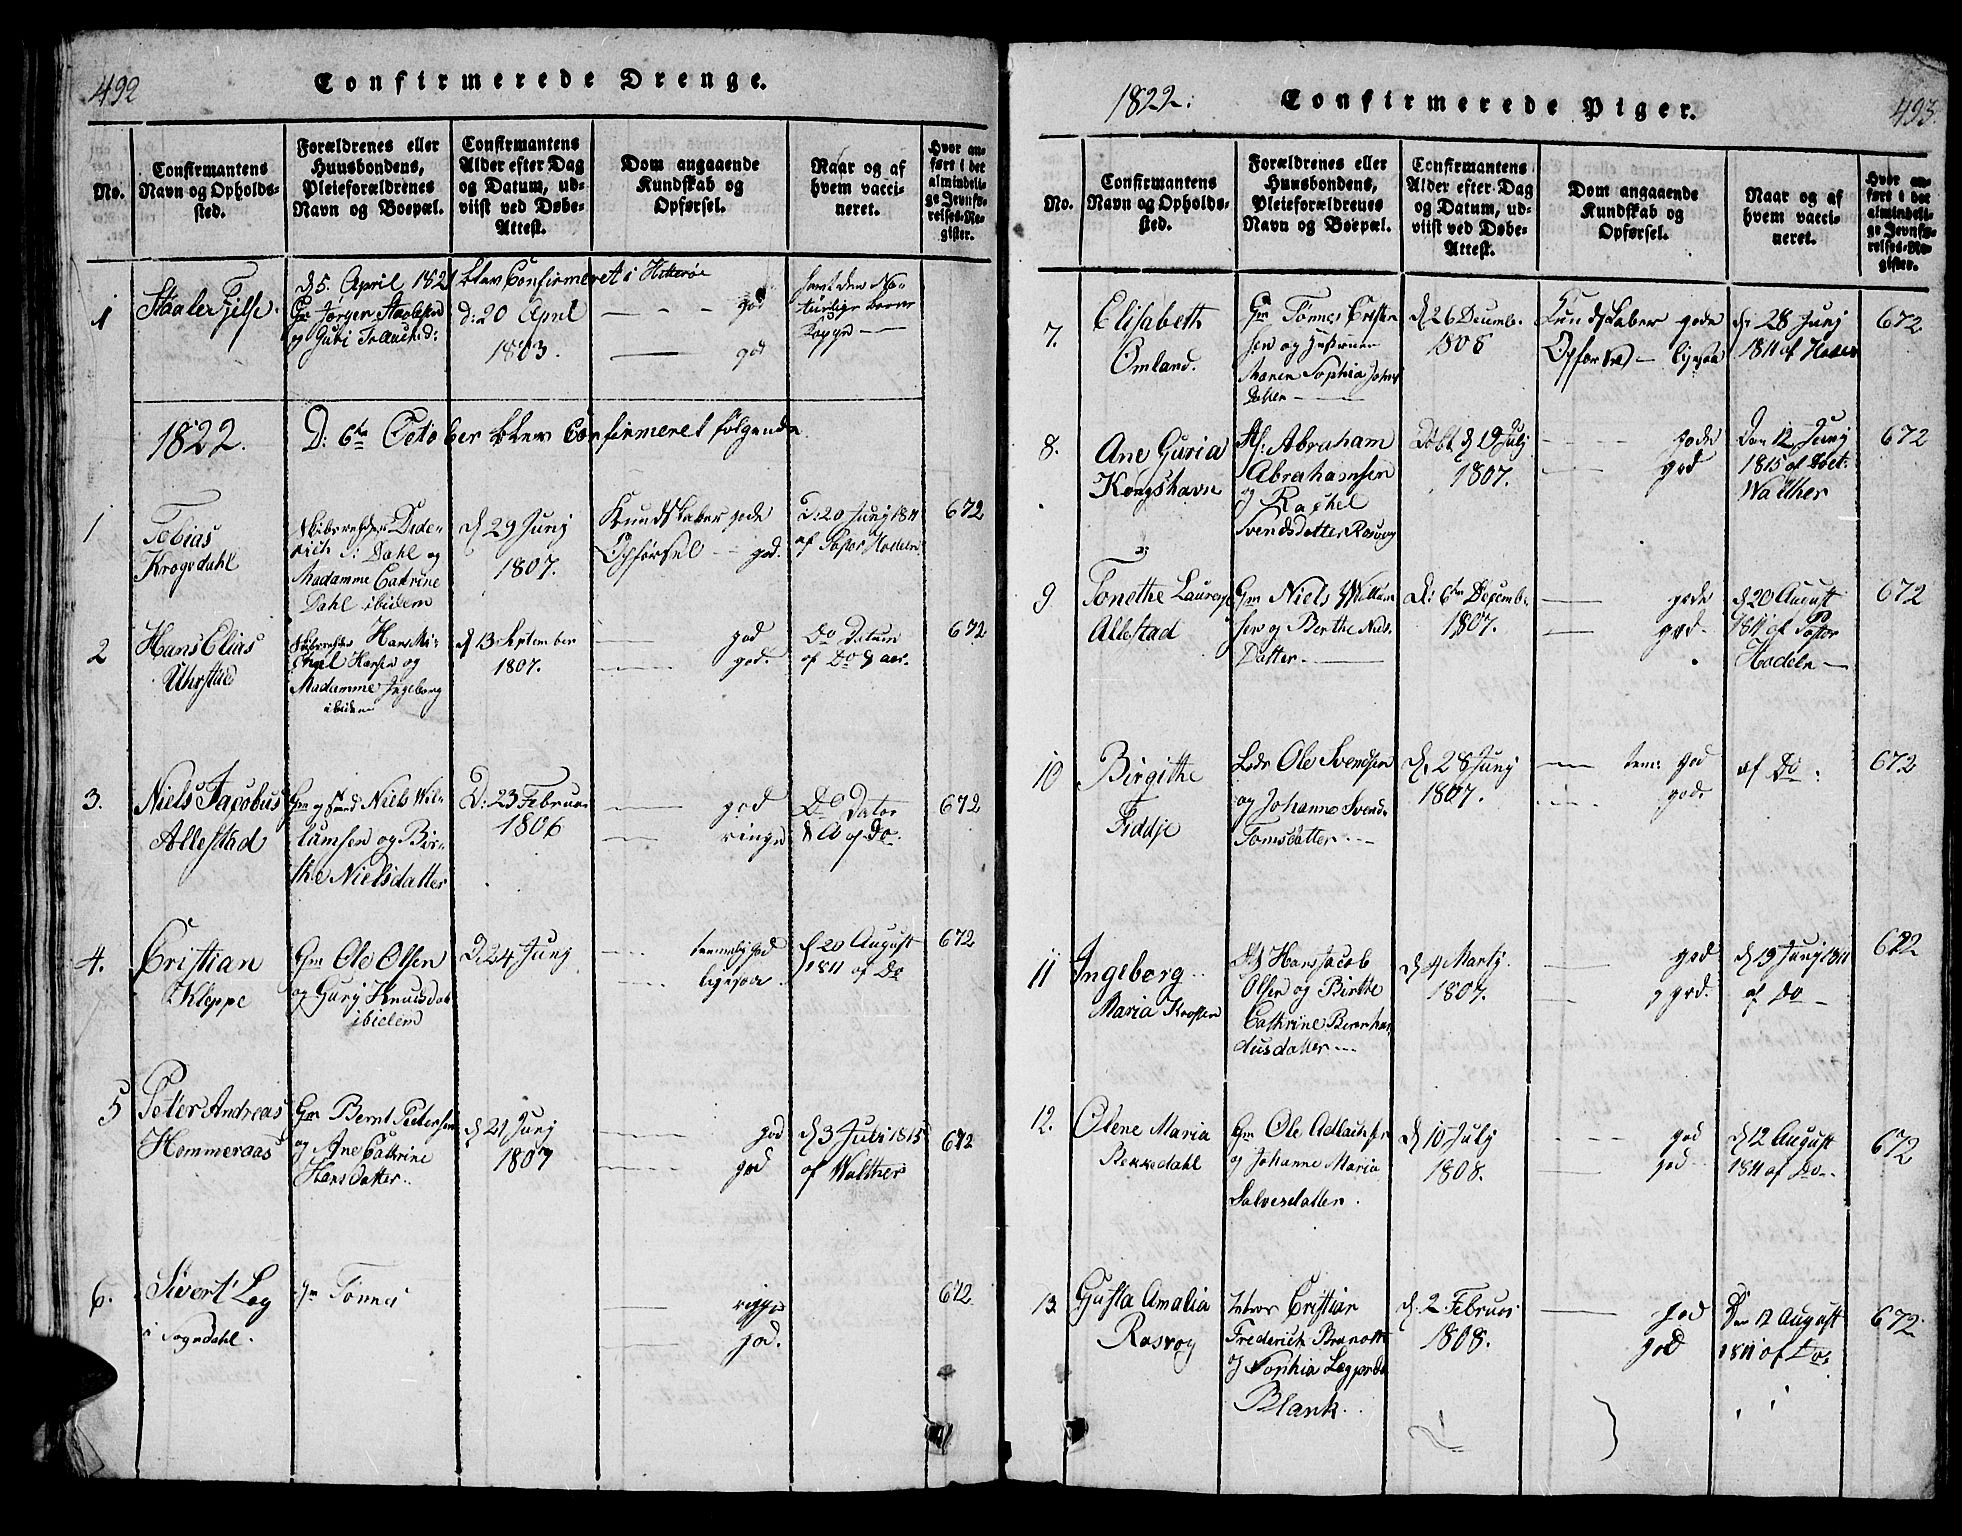 492
Confirmerede Drenge.
No.
Confirmantens
Navn og Opholds-
sted.
Forældrenes eller
Huusbondens,
Pleieforældrenes
Navn og Boepæl.
Confirmantens
Alder efter Dag
og Datum, ud-
viist ved Døbe-
Attest.
Dom angaaende
Kundskab og
Opførsel.
Naar og af
hvem vacci-
neret.
Hvor an-
ført i det
almindeli-
ge Jevnfø-
relses-Re-
gister.
d 5. April 1821 blev Confirmeret i Hitterøe
1
Staaler Fjelse.
Gm Jørgen Staalesen
og Guri
D: 20 April
1803.
god
god
havt den Na-
turlige
1822.
D: 6te October blev Confirmeret følgende
1
Tobias
Krogsdahl
Skibsrehder Dide-
rich Dahl og
Madamme Catrine
Dahl ibidem
d 29 Junj
1807.
Kundskaber gode
Opførsel god.
D: 20 Junj 1811
af Pastor Hodeln
672
2
Hans Elias
Uhrstad
Skibsrehder Hans Mi-
chael Hansen og
Madamme Ingeborg
ibidem
d 13 September
1807.
god
god.
Do Datum
af Do
672
3.
Niels Jacobus
Allestad
Gm Niels Wil-
lumsen og Bir-
the Nielsdatter
D: 23 Februar
1806
god
ringe
Do Dato
af Do.
672
4.
Cristian
Kleppe
Gm Ole Olsen
og Gurj Knudsdat
ibidem
D. 24 Junj
temmelig god
ligesaa
d 20 August
1811 af Do
672
5
Peter Andreas
Hommeraas
Gm Bernt Petersen
og Ane Catrine
Hansdatter.
d 21 Junj
1807
god
god
d 3 Juli 1815
af Walther
672
6.
Sivert Leg
i Sogndahl.
Gm Tønnes
god.
672
1822:
Confirmerede Piger.
493.
No.
Confirmantens
Navn og Opholds-
sted.
Forældrenes eller
Huusbondens,
Pleieforældrenes
Navn og Boepæl.
Confirmantens
Alder efter Dag
og Datum, ud-
viist ved Døbe-
Attest.
Dom angaaende
Kundskab og
Opførsel.
Naar og af
hvem vacci-
neret.
Hvor an-
ført i det
almindeli-
ge Jevnfø-
relses-Re-
gister.
7.
Elisabeth
Omland.
Gm Tønnes
sen og Hustrue
Maren Sophia
Datter
d 26 Decemb.
1808
Kundskaber gode
Opførsel ligesaa
d: 28 Junj
1811 af
672
8.
Ane Guria
Kongshavn
Abraham
Abrahamsen
og Rachel
Svendsdatter Rasvog
Døbt d 19 Julj
1807.
gode
god
Den 12 Junj
1815 af
Walther
672
9
Tonethe
Allestad
Gm Niels Willum
sen og Berthe Niels
Datter.
D: 6te Decembe
1807.
gode
god.
d 20 August
1811 af Pastor
Hodeln
672
10
Birgithe
Fiddje
Lods Ole Svendsen
og Johanne Svend-
Tomsdatter
d. 28 Junj
1807.
tem: god
god.
af Do:
672
11
Ingeborg
Maria
Hans Jacob
Olsen og Birthe
Cathrine Bernhar
dusdatter
d 4 Martj
1807.
god
god.
d 19 Junj 1811
af Do
672
12.
Olene Maria
Rekkedahl
Gm Ole
og Johanne Maria
Salvesdatter.
d 10 Julj
1808.
god
god
d 12 August
1811 af Do.
672
13
Gusta Amalia
Rasvog
Cristian
Frederich
og Sophia
Blank.
d. 2 Februar
1808.
god
god
Den 12 August
1811 af Do.
672.